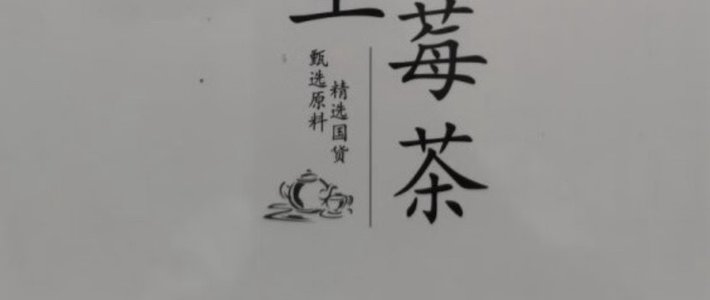 莓茶
精选国货
甄选原料